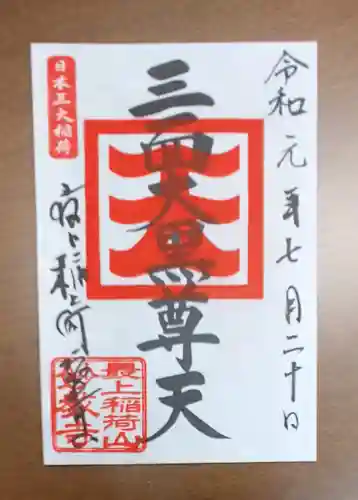 令和元年七月二十日
三面大黒尊天
日本三大稲荷
最上稲荷山
妙教寺